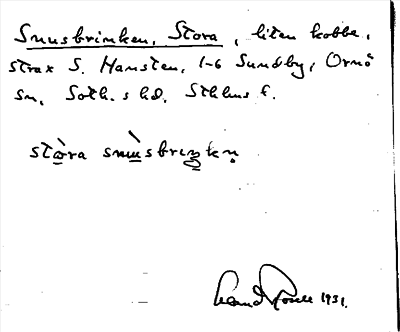 Snusbrinken, Stora, liten kobbe,
strax S. Hansten, 1-6 Sundby, Ornö
sn, Soth.s hd, Sthlms l.
stòra snùsbrinkn
1931.